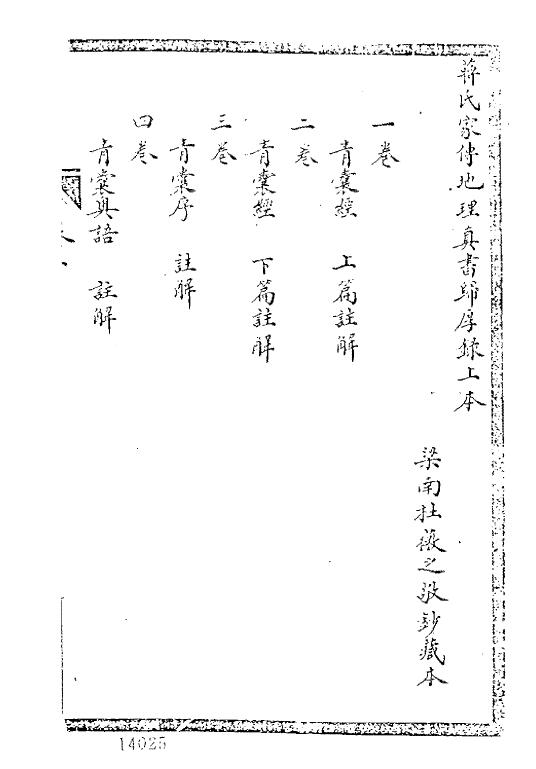 蔣氏家傳地理真書歸厚錄上本
梁南杜薇之敬鈔藏本
一卷
青囊經 上篇註解
二卷
青囊經 下篇註解
三卷
青囊序 註解
四卷
青囊奥語 註解
14025